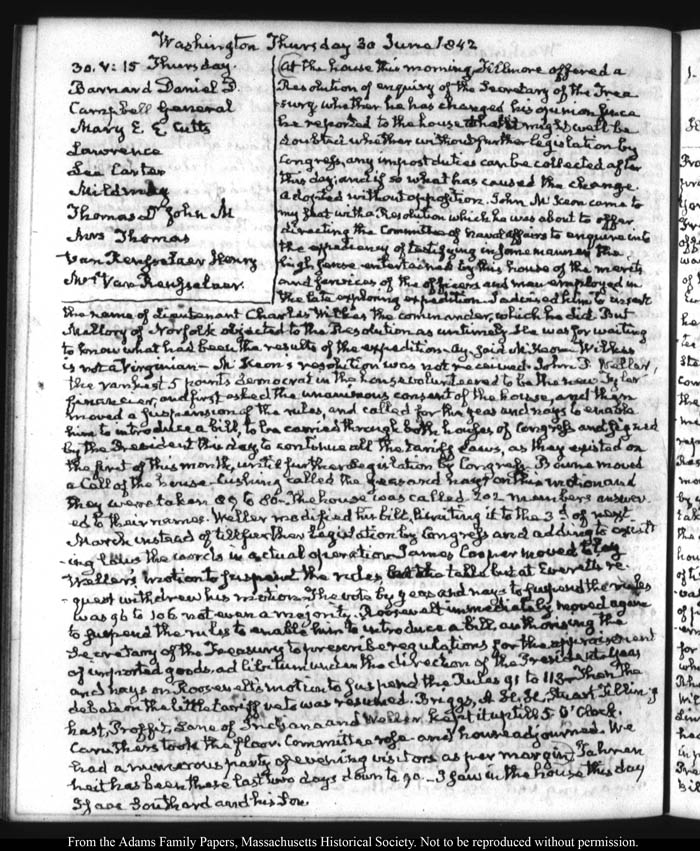 Washington Thursday 30 June 1842
30. V: 15 Thursday.
Barnard Daniel D.
Campbell General
Mary E. E Cutts
Lawrence
Lee Carter
Mildmay
Thomas D John M
Mrs Thomas
Van Rensselaer Henry
Mrs Van Rensselaer.
At the house this morning Fillmore offered a
Resolution of enquiry of the Secretary of the Trea
sury whether he has changed his opinion since
he reported to the house that it might well be
doubted whether without further legislation by
Congress, any impost duties can be collected after
this day; and if so what has caused the change
adopted without opposition. John McKeon came to
my seat with a Resolution which he was about to offer
directing the Committee of naval affairs to enquire into
the expediency of testifying in some manner the
high sense entertained by this house of the merits
and services of the officers and men employed in
the late exploring expedition. I advised him to insert
the name of Lieutenant Charles Wilkes the commander, which he did. But
Mallory of Norfolk objected to the Resolution as untimely. He was for waiting
to know what had been the results of the expedition. Ay, said McKeon Wilkes
is not a Virginian — McKeon's resolution was not received. John B. Weller,
the rankest 5 points democrat in the house volunteered to be the new Tyler
financier, and first asked the unanimous consent of the house, and then
moved a suspension of the rules, and called for the yeas and nays to enable
him to introduce a bill, to be carried through both houses of Congress and signed
by the President this day to continue all the Tariff Laws, as they existed on
the first of this month, until further Legislation by Congress. Bowne moved
a Call of the house. Cushing called the yeas and nays on this motion and
they were taken 89 to 80. The house was called 202 members answer
ed to their names. Weller modified his bill, limiting it to the 3d of next
March instead of till further Legislation by Congress and adding to exist
-ing laws the words in actual operation. James Cooper moved to lay
Weller's motion to suspend the rules, on the table but at Everett's re
-quest withdrew his motion. The vote by yeas and nays to suspend the rules
was 96 to 106 not even a majority. Roosevelt immediately moved again
to suspend the rules to enable him to introduce a bill authorising the
Secretary of the Treasury to prescribe regulations for the appraisement
of imported goods, ad libitum under the direction of the President. yeas
and nays on Roosevelt's motion to suspend the Rules 91 to 113. Then the
debate on the little tariff veto was resumed. Briggs, A. H. H. Stuart Tilling
hast, Proffit, Lane of Indiana and Weller kept it up till 5. O'Clock.
Caruthers took the floor. Committee rose and house adjourned. We
had a numerous party of evening visitors as per margin. Fahren
heit has been these last two days down to 70. — I saw in the house this day
Isaac Southard and his Son.
From the Adams Family Papers, Massachusetts Historical Society. Not to be reproduced without permission.